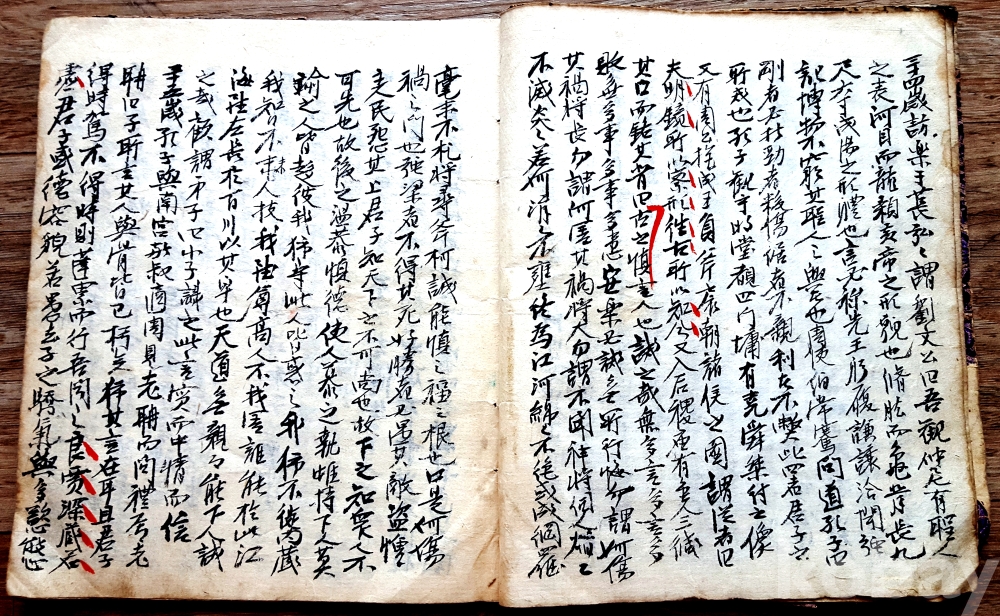 歲訪樂于萇弘〻謂劉文公曰吾觀仲尼有聖人
之表河目而龍顙黃帝之形貌也脩肱而龜背長九
尺六寸成湯之形體也言必稱先王躬履謙讓洽聞強
記博物不窮其聖人之興者也周伯常騫問道孔子曰
剛者不折勁者傷倨者不親利者不弊此四者君子之
所戒也孔子觀乎明堂覩四門墉有堯舜桀紂之像
又有周公抱成王負斧扆朝諸侯之圖謂從者曰
夫明鏡所以察形往古所以知今又入后稷廟有金人三緘
其口而銘其背曰古之慎言人也誡之哉無多言多言多
敗無多事多事多患安樂必誡無所行悔勿謂何傷
其禍將長勿謂何害其禍將大勿謂不聞神將伺人焰〻
不滅炎〻若何涓〻不壅終為江河綿〻不絕或成網羅
毫末不札將尋斧柯誠能慎之福之根也口是何傷
禍之門也强梁者不得其死好勝者必遇其敵盜憎
主民怨其上君子知天下之不可尚也故下之知衆之不
可先也故後之溫恭慎德使人慕之執雌持下人莫
踰之人皆趨彼我獨守此人皆惑之我獨不徙藏
我智不示人技我雖尊高人不我害誰能於此江
海雖左長於百川以其卑也天道無親而能下人誡
之哉觀謂弟子曰小子識之此言實而中情而信
歲孔子與南宮敬叔適周見老聃而問禮焉老
聃曰子所言其人與骨皆已朽矣其言在耳且君子
得時駕不得時則蓬累而行吾聞之良賈深藏若
虛君子盛德容貌若愚去子之驕氣與多慾態
kobay